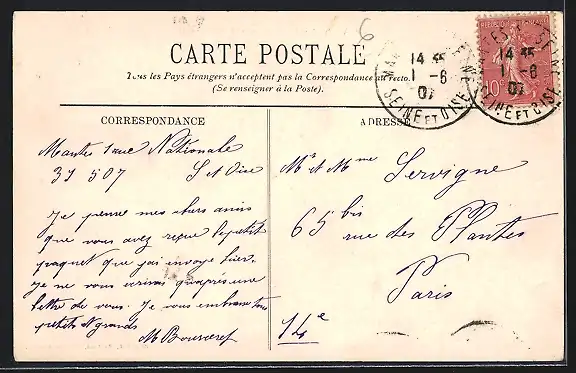 CARTE POSTALE
Tous les Pays étrangers n'acceptent pas la Correspondance au recto.
(Se renseigner à la Poste).
CORRESPONDANCE
Mantes 1 rue Nationale
31 5 07 S et Oise
Je pense mes chers amis
que vous avez reçue le petit
paquet que jai envoye hier.
je ne vous écrirai quaprés une
lettre de vous. Je vous embrasse tous
petits et grands
M
ADRESSE
Mr et Mme Servigne
65 bis
rue des Plantes
Paris
14e
6
14
1 - 6
07
SEINE ET OISE
14
1 - 6
07
SEINE ET OISE
10c